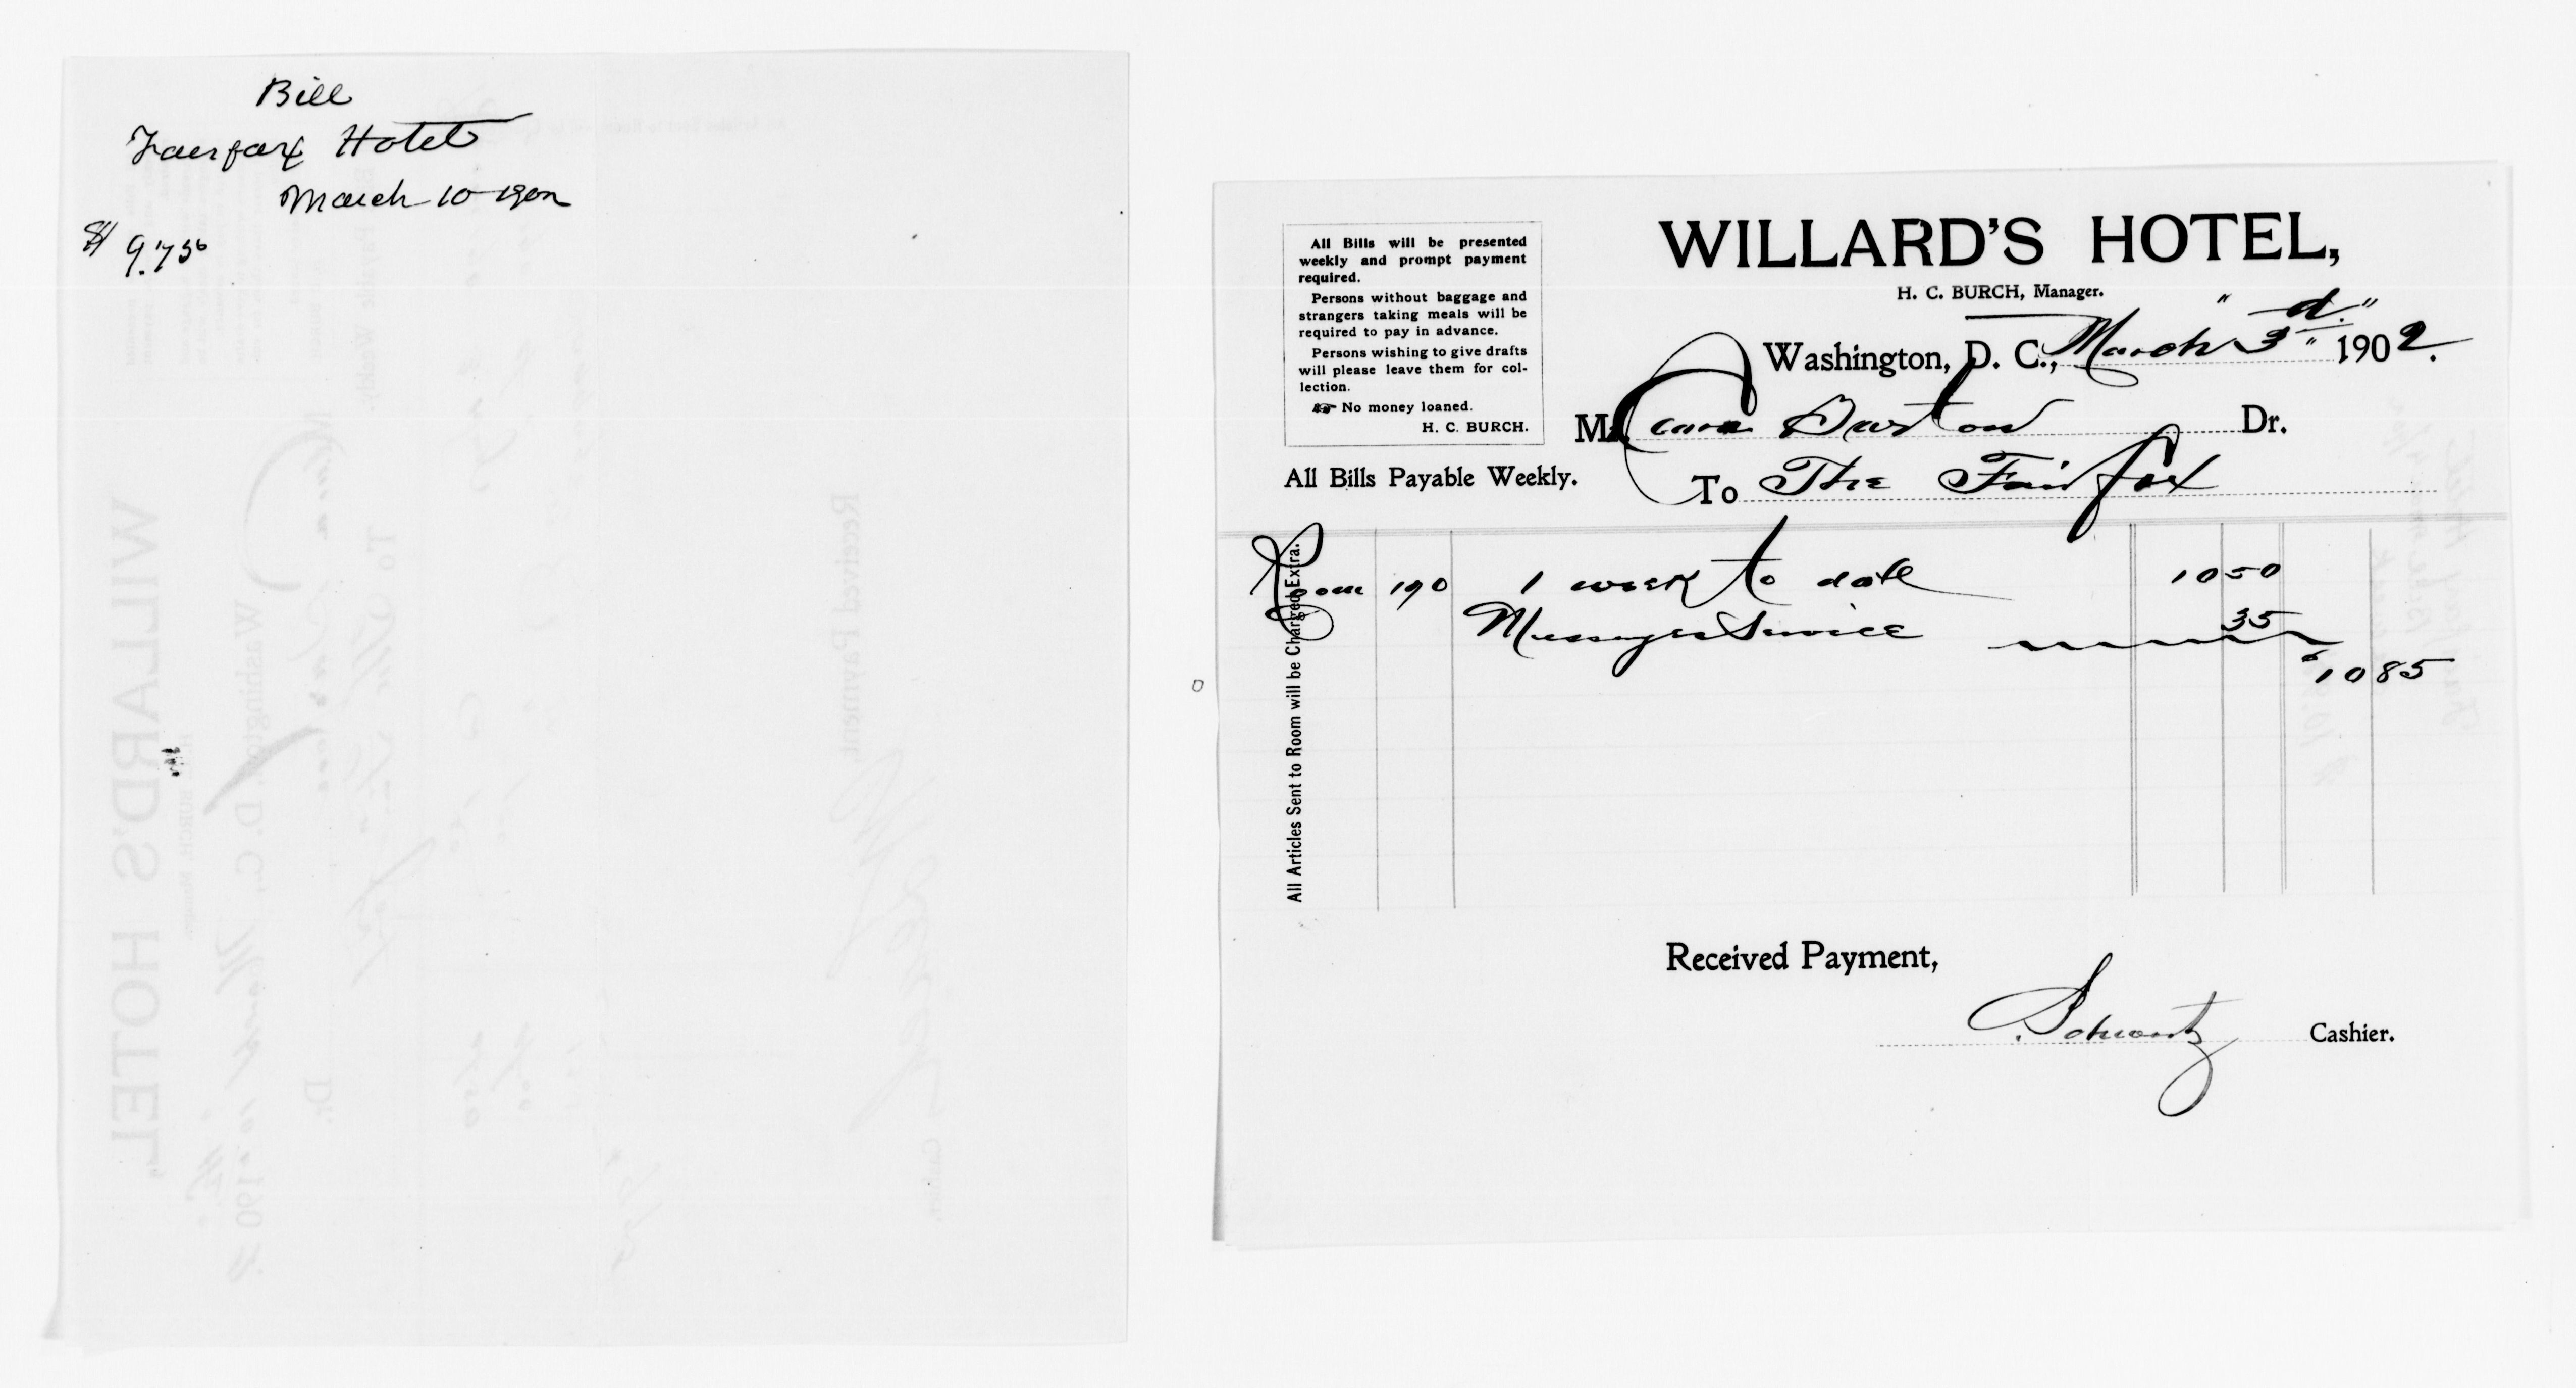 Bill
Fairfax Hotel
March 10 - 1902
$ 9.750
All Bills will be presented
weekly and prompt payment
required.
Persons without baggage and
strangers taking meals will be
required to pay in advance.
Persons wishing to give drafts
will please leave them for col-
lection.
No money loaned.
H. C. BURCH.
All Bills Payable Weekly.
WILLARD'S HOTEL,
H. C. BURCH, Manager.
Washington, D. C., March "3d." 1902.
M Clara Barton Dr.
To The Fairfax
All Articles Sent to Room will be Charged Extra.
Room 190 1 week to date 10 50
Messenger Service 35
$10 85
Received Payment,
Schwartz Cashier.